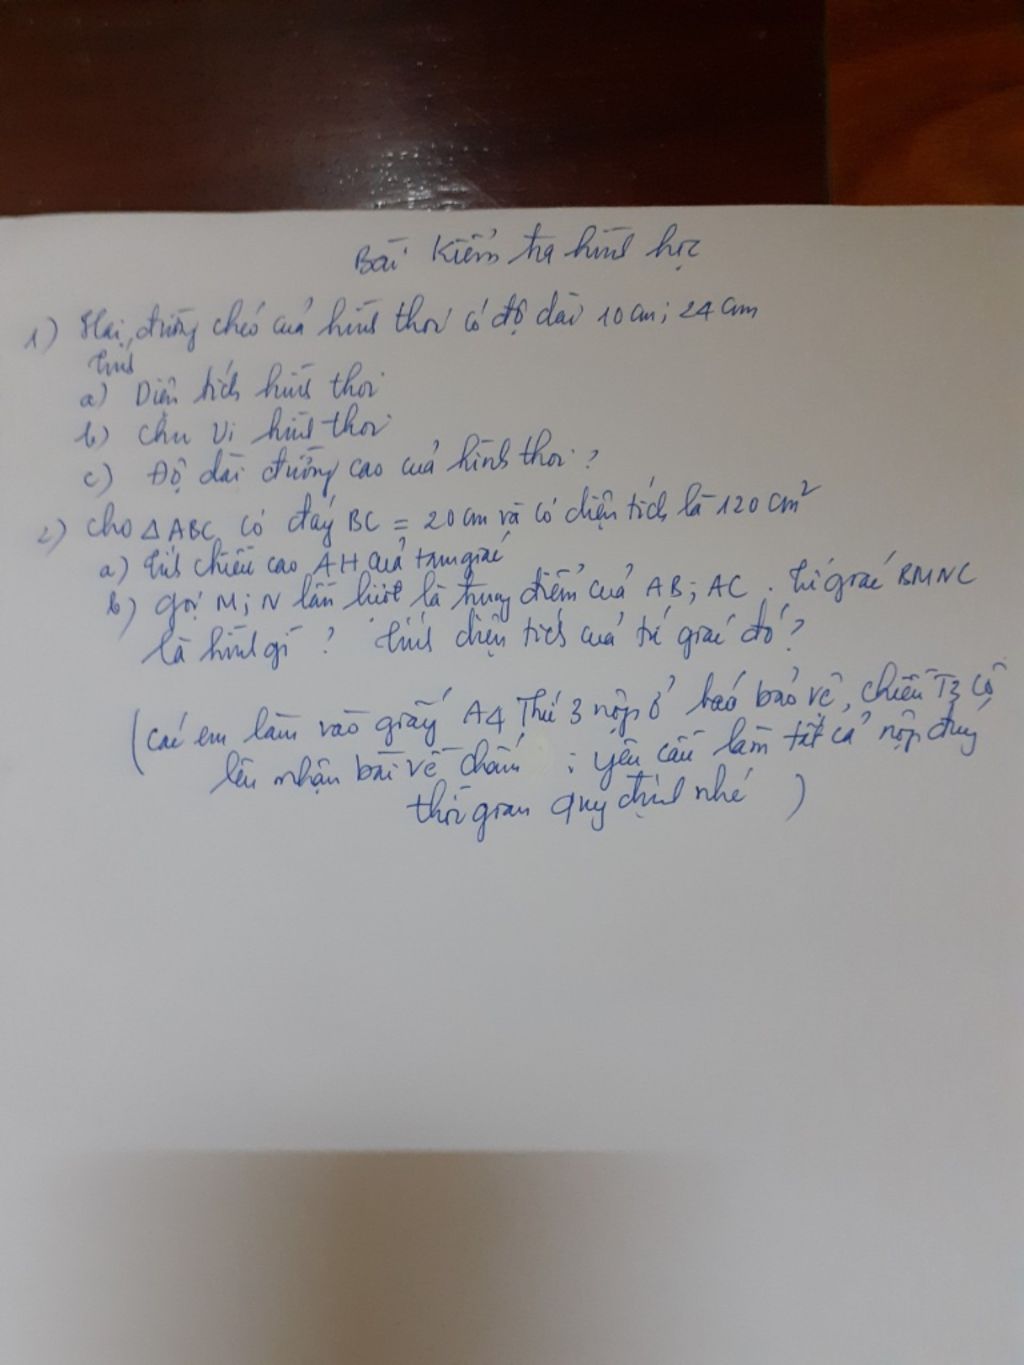 Bài Kiểm tra hình học
1) Hai đường chéo của hình thoi có độ dài 10cm; 24cm
Tính
a) Diện tích hình thoi
b) Chu vi hình thoi
c) Độ dài đường cao của hình thoi?
2) Cho △ABC có đáy BC = 20cm và có diện tích là 120cm²
a) Tính chiều cao AH của tam giác
b) Gọi M; N lần lượt là trung điểm của AB; AC. Tứ giác BMNC
là hình gì? Tính diện tích của tứ giác đó?
(Các em làm vào giấy A4 Thứ 3 nộp ở bác bảo vệ, chiều T3 cô
lên nhận bài về chấm; yêu cầu làm tất cả nộp đúng
thời gian quy định nhé)